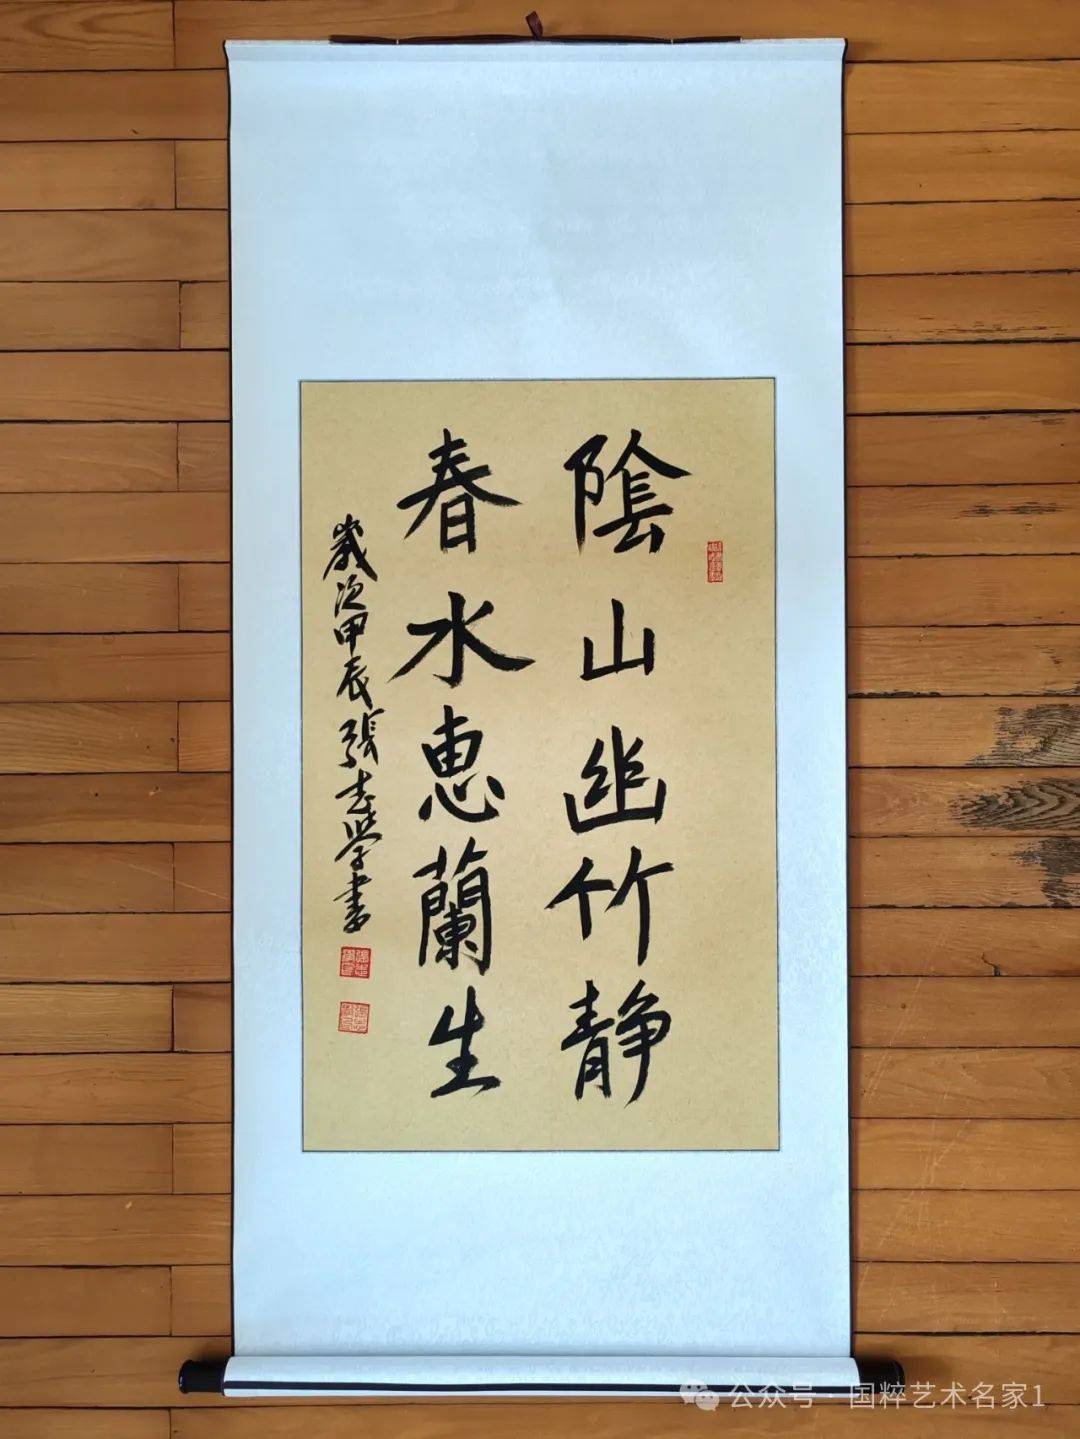 陰山幽竹静
春水惠蘭生
歲次甲辰張志学書
公众号·国粹艺术名家1